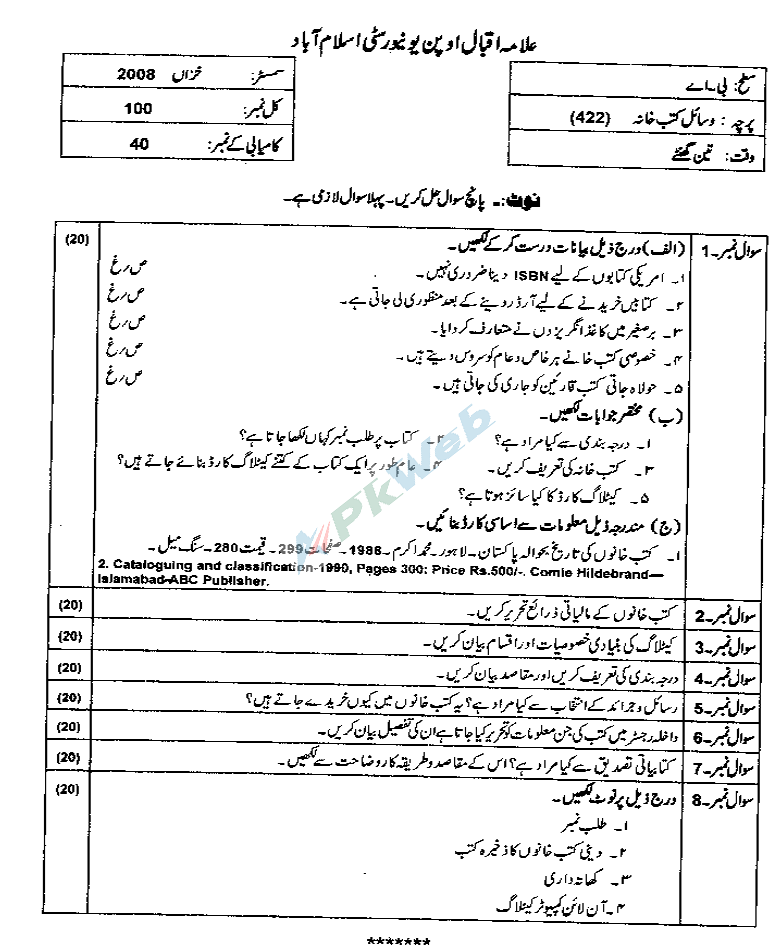 علامہ اقبال اوپن یونیورسٹی اسلام آباد
سطح: بی۔اے
پرچہ : وسائل کتب خانہ (422)
وقت: تین گھنٹے
سمسٹر: خزاں 2008
کل نمبر: 100
کامیابی کے نمبر: 40
نوٹ:۔ پانچ سوال حل کریں۔ پہلا سوال لازمی ہے۔
سوال نمبر۔1 (الف) درج ذیل بیانات درست کر کے لکھیں۔ (20)
۱۔ امریکی کتابوں کے لیے ISBN دینا ضروری نہیں۔ ص/غ
۲۔ کتابیں خریدنے کے لیے آرڈر دینے کے بعد منظوری لی جاتی ہے۔ ص/غ
۳۔ برصغیر میں کاغذ انگریزوں نے متعارف کروایا۔ ص/غ
۴۔ خصوصی کتب خانے ہر خاص و عام کو سروس دیتے ہیں۔ ص/غ
۵۔ حوالہ جاتی کتب قارئین کو جاری کی جاتی ہیں۔ ص/غ
(ب) مختصر جوابات لکھیں۔
۱۔ درجہ بندی سے کیا مراد ہے؟ ۲۔ کتاب پر طلب نمبر کہاں لکھا جاتا ہے؟
۳۔ کتب خانہ کی تعریف کریں۔ ۴۔ عام طور پر ایک کتاب کے کتنے کیٹلاگ کارڈ بنائے جاتے ہیں؟
۵۔ کیٹلاگ کارڈ کا کیا سائز ہوتا ہے؟
(ج) مندرجہ ذیل معلومات سے اساسی کارڈ بنائیں۔
۱۔ کتب خانوں کی تاریخ بحوالہ پاکستان۔ لاہور۔ محمد اکرم۔ 1986۔ صفحات 299۔ قیمت 280۔ سنگ میل۔
2. Cataloguing and classification-1990, Pages 300: Price Rs.500/-. Comie Hildebrand—
Islamabad-ABC Publisher.
سوال نمبر۔2 کتب خانوں کے مالیاتی ذرائع تحریر کریں۔ (20)
سوال نمبر۔3 کیٹلاگ کی بنیادی خصوصیات اور اقسام بیان کریں۔ (20)
سوال نمبر۔4 درجہ بندی کی تعریف کریں اور مقاصد بیان کریں۔ (20)
سوال نمبر۔5 رسائل و جرائد کے انتخاب سے کیا مراد ہے؟ یہ کتب خانوں میں کیوں خریدے جاتے ہیں؟ (20)
سوال نمبر۔6 داخلہ رجسٹر میں کتب کی جن معلومات کو تحریر کیا جاتا ہے ان کی تفصیل بیان کریں۔ (20)
سوال نمبر۔7 کتابیاتی تصدیق سے کیا مراد ہے؟ اس کے مقاصد و طریقہ کار وضاحت سے لکھیں۔ (20)
سوال نمبر۔8 درج ذیل پر نوٹ لکھیں۔ (20)
۱۔ طلب نمبر
۲۔ دینی کتب خانوں کا ذخیرہ کتب
۳۔ کھاتہ داری
۴۔ آن لائن کمپیوٹر کیٹلاگ
*******
PkWeb